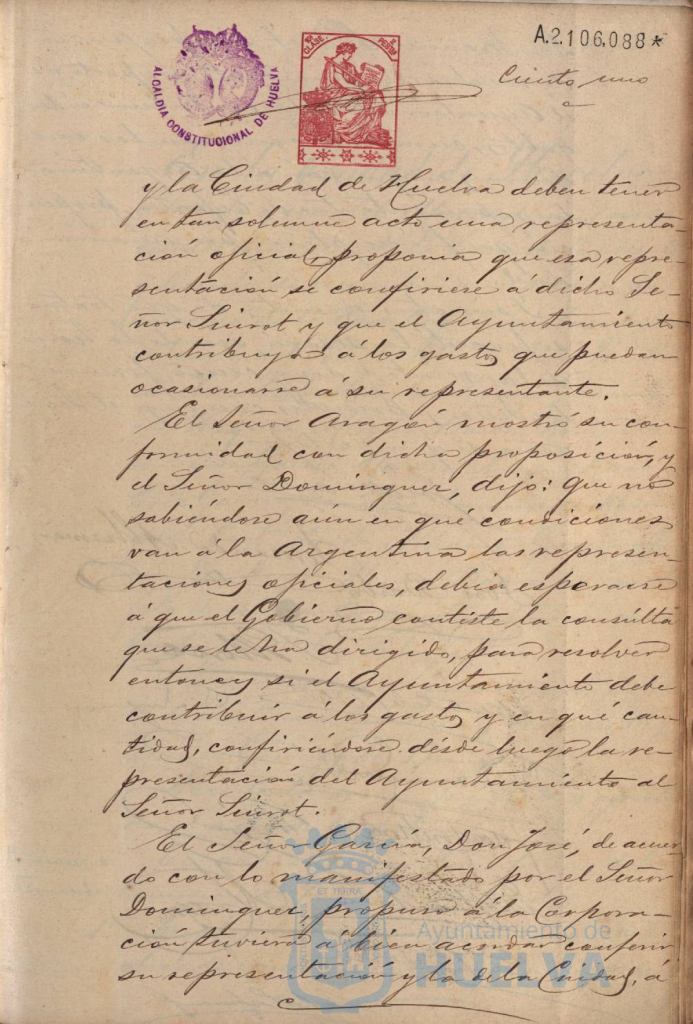 A.2.106,088*
ALCALDIA CONSTITUCIONAL DE HUELVA
10ª CLASE
2 PESETAS
Ciento uno
y la Ciudad de Huelva deben tener
en tan solemne acto una representa-
ción oficial, proponia que esa repre-
sentación se confiriese á dicho Se-
ñor Siurot y que el Ayuntamiento
contribuya á los gastos que puedan
ocasionarse á su representante.
El Señor Aragón mostró su con-
formidad con dicha proposición, y
el Señor Dominguez, dijo: Que no
sabiéndose aún en qué condiciones
van á la Argentina las represen-
taciones oficiales, debia esperarse
á que el Gobierno contiste la consulta
que se le ha dirigido, para resolver
entonces si el Ayuntamiento debe
contribuir á los gastos y en qué can-
tidad, confiriéndose desde luego la re-
presentación del Ayuntamiento al
Señor Siurot.
El Señor García, Don José, de acuer-
do con lo manifestado por el Señor
Dominguez, propuso á la Corpora-
ción tuviera á bien acordar conferir
su representación y la de la Ciudad, á
Ayuntamiento de
HUELVA